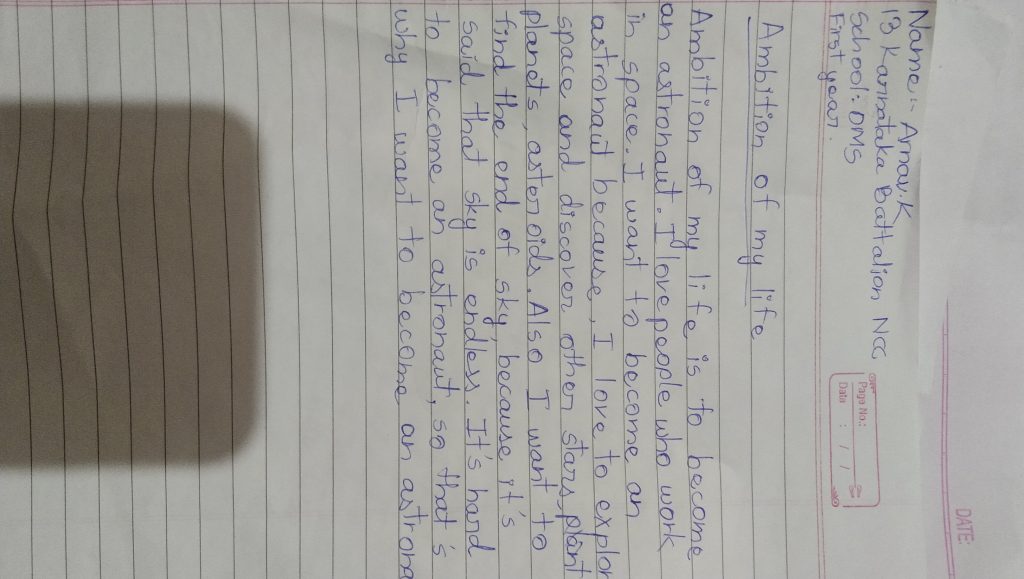 Name:- Arnav.K
13 Karnataka Battalion NCC
School: DMS
First year.
Page No.:
Date : / /
DATE:
Ambition of my life
Ambition of my life is to become
an astronaut. I love people who work
in space. I want to become an
astronaut because, I love to explor
space and discover other stars, plant
planets, asteroids. Also I want to
find the end of sky, because it's
said that sky is endless. It's hard
to become an astronaut, so that's
why I want to become an astrona